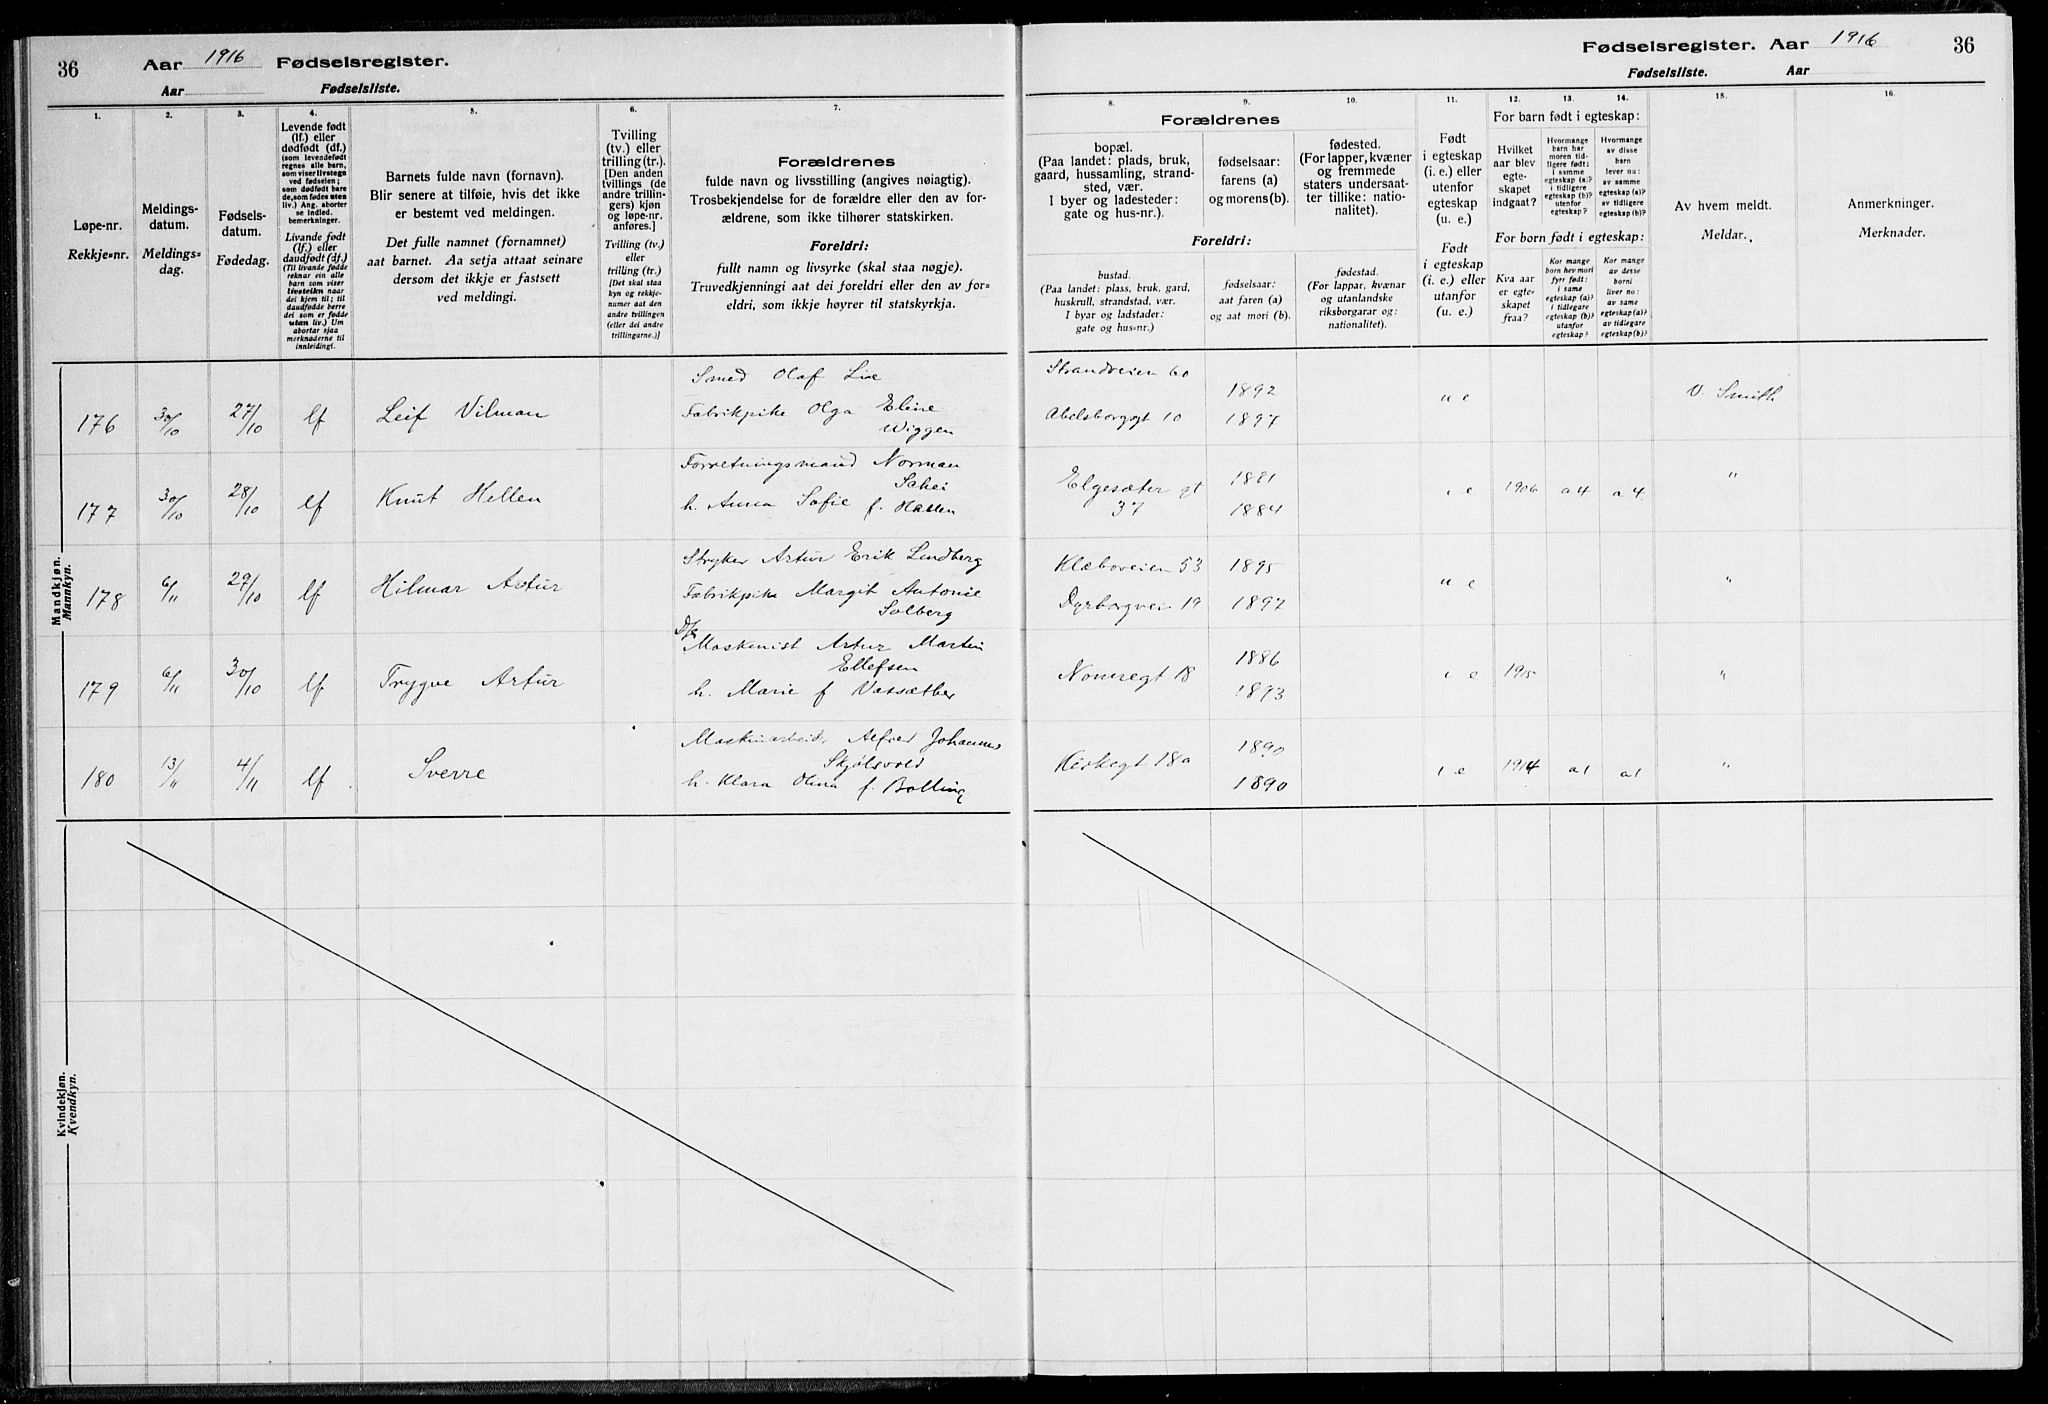 36 Aar 1916 Fødselsregister.
Aar Fødselsliste.
Fødselsregister. Aar 1916 36
Fødselsliste. Aar
1. 2. 3. 4. 5. 6. 7.
Løpe-nr.
Rekkje=nr.
Meldings-
datum.
Meldings=
dag.
Fødsels-
datum.
Fødedag.
Levende født
(lf.) eller
dødfødt (df.)
(som levendefødt
regnes alle barn,
som viser livstegn
ved fødselen;
som dødfødt bare
de, som fødes uten
liv.) Ang. aborter
se indled.
bemerkninger.
Livande født
(lf.) eller
daudfødt (df.)
(Til livande fødde
reknar ein alle
barn som viser
livsteikn naar
dei kjem til; til
daudfødde berre
dei som er fødde
utan liv.) Um
abortar sjaa
merknaderne til
innleidingi.
Barnets fulde navn (fornavn).
Blir senere at tilføie, hvis det ikke
er bestemt ved meldingen.
Det fulle namnet (fornamnet)
aat barnet. Aa setja attaat seinare
dersom det ikkje er fastsett
ved meldingi.
Tvilling
(tv.) eller
trilling (tr.).
[Den anden
tvillings (de
andre trillin-
gers) kjøn
og løpe-nr.
anføres.]
Tvilling (tv.)
eller
trilling (tr.)
[Det skal staa
kyn og rekkje-
numer aat den
andre tvillingen
(eller dei andre
trillingarne.)]
Forældrenes
fulde navn og livsstilling (angives nøiagtig).
Trosbekjendelse for de forældre eller den av for-
ældrene, som ikke tilhører statskirken.
Foreldri:
fullt namn og livsyrke (skal staa nøgje).
Truvedkjenningi aat dei foreldri eller den av for=
eldri, som ikkje høyrer til statskyrkja.
8. 9. 10. 11. 12. 13. 14. 15. 16.
Forældrenes
bopæl.
(Paa landet: plads, bruk,
gaard, hussamling, strand-
sted, vær.
I byer og ladesteder:
gate og hus-nr.).
fødselsaar:
farens (a)
og morens (b).
fødested.
(For lapper, kvæner
og fremmede
staters undersaat-
ter tillike: natio-
nalitet).
Foreldri:
bustad.
(Paa landet: plass, bruk, gard,
huskrull, strandstad, vær.
I byar og ladstader:
gate og hus=nr.)
fødselsaar:
aat faren (a)
og aat mori (b).
fødestad.
(For lappar, kvænar
og utanlandske
riksborgarar og:
nationalitet).
Født
i egteskap
(i. e.) eller
utenfor
egteskap
(u. e.)
Født
i egteskap
(i. e.) eller
utanfor
(u. e.)
For barn født i egteskap:
Hvilket
aar blev
egte-
skapet
indgaat?
Hvormange
barn har
moren tid-
ligere født:
i samme
egteskap (a)?
i tidligere
egteskap (b)?
utenfor
egteskap?
Hvormange
av disse
barn
lever nu:
av samme
egteskap (a)?
av tidligere
egteskap (b)?
For born født i egteskap:
Kva aar
er egte-
skapet
fraa?
Kor mange
born hev mori
fyrr født:
i same
egteskap (a)?
i tidlegare
egteskap (b)?
utanfor
egteskap?
Kor mange
av desse
borni
liver no:
av same
egteskap (a)?
av tidlegare
egteskap (b)?
Av hvem meldt.
Meldar.
Anmerkninger.
Merknader.
Mandkjøn.
Mannkyn.
176 30/10 27/10 lf Leif Vilman Smed Olaf Lie
Fabrikpike Olga Eline
Wiggen
Strandveien 60 1892
Abelsborggt 10 1897
u e V. Smith
177 30/10 28/10 lf Knut Hellen Forretningsmand Norman
Schei
h. Anna Sofie f.
Elgesæter gt
37
1881
1884
i e 1906 a 4 a 4 "
178 6/11 29/10 lf Hilmar Artur Stryker Artur Erik Lundberg
Fabrikpike Margit Antonie
Solberg
Klæboveien 53 1895
Dyrborgvei 19 1892
u e "
179 6/11 30/10 lf Trygve Artur Maskinist Artur Martin
Ellefsen
h. Marie f Vassæther
Nonnegt 18 1886
1893
i e 1915 "
180 13/11 4/11 lf Sverre Maskinarbeid. Alfred Johannes
Skjølsvold
h. Klara Olina f. Bolling
Kirkegt 18a 1890
1890
i e 1914 a 1 a 1 "
Kvindekjøn.
Kvendkyn.